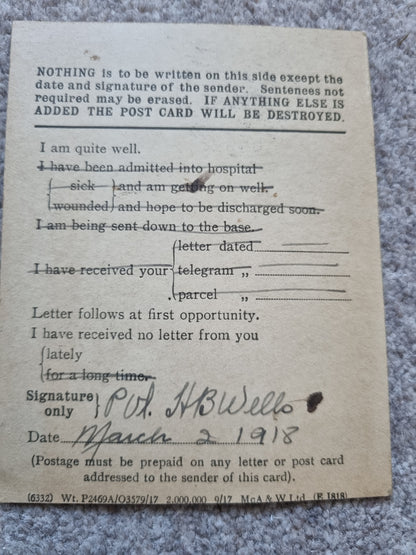 NOTHING is to be written on this side except the
date and signature of the sender. Sentences not
required may be erased. IF ANYTHING ELSE IS
ADDED THE POST CARD WILL BE DESTROYED.
I am quite well.
I have been admitted into hospital
sick and am getting on well.
wounded and hope to be discharged soon.
I am being sent down to the base.
letter dated
I have received your telegram „
parcel „
Letter follows at first opportunity.
I have received no letter from you
lately
for a long time.
Signature only Pvt. H B Wells
Date March 2 1918
(Postage must be prepaid on any letter or post card
addressed to the sender of this card).
(6332) Wt. P2469A/O3579/17 2,000,000 9/17 McA & W Ltd. (E 1818)